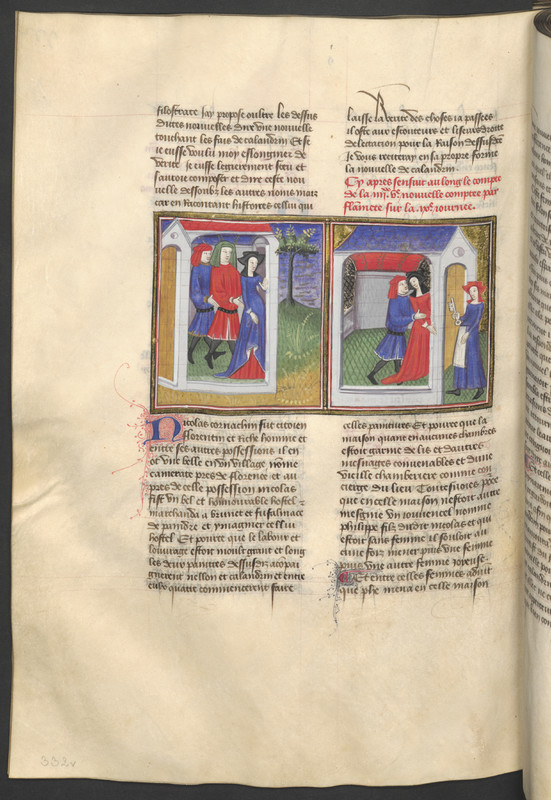 filostrate Jay propose oultre les dessus
dittes nouvelles dire une nouvelle
touchant les fais de calandrin Et se
je eusse voulu moy esslongnier de
verite je eusse legierement sceu et
sauroie composer et dire ceste nou
velle dessoubz les autres noms mais
car en racontant histoires cellui qui
laisse la verite des choses ja passees
il oste aux escouteurs et liseurs droite
delectation pour la Raison dessusdite
Je vous reciteray en sa propre forme
la nouvelle de calandrin
Cy apres sensuit au long le compte
de la nouvelle comptee par
flamete sur la journee.
Nicolas cornachin fut citoien
florentin et riche homme et
entre ses autres possessions il en
ot une belle en un village nomme
camerate pres de florence et au
pres de celle possession nicolas
fist un bel et honnourable hostel
marchanda a brunet et
de paindre et ymaginer cellui
hostel Et pource que le labour et
louvraige estoit moult grant et long
les deux paintres dessusdiz acompai
gnerent nellon et calandrin et entre
eulx quatre commencerent faire
celles paintures Et pource que la
maison quant en aucunes chambres
estoit garnie de lis et dautres
mesnages convenables et dune
vieille chamberiere comme con
cierge du lieu Toutesvoies pour
que en celle maison nestoit autre
mesgnie un jouvencel nomme
philippe filz dudit nicolas et qui
estoit sans femme il souloit au
cune fois mener puis une femme
puis une autre femme joieuse
Et entre celles femmes advint
que phe mena en celle maison
332v